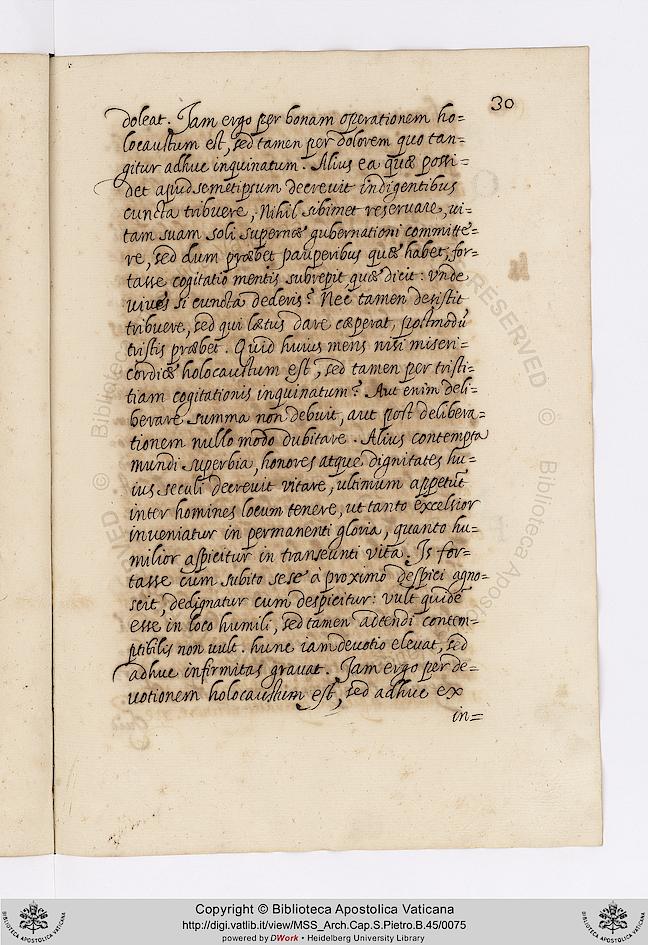 30
doleat. Jam ergo per bonam operationem ho=
locaustum est, sed tamen per dolorem quo tan=
gitur adhuc inquinatum. Alius ea quæ possi=
det apud semetipsum decreuit indigentibus
cuncta tribuere, Nihil sibimet reseruare, ui=
tam suam soli supernæ gubernationi committe=
re, sed dum præbet pauperibus quæ habet, for=
tasse cogitatio mentis subrepit quæ dicit: vnde
uiues si cuncta dederis? Nec tamen desistit
tribuere, sed qui lætus dare cæperat, postmodũ
tristis præbet. Quid huius mens nisi miseri=
cordiæ holocaustum est, sed tamen per tristi=
tiam cogitationis inquinatum? Aut enim deli=
berare summa non debuit, aut post delibera=
tionem nullo modo dubitare. Alius contempta
mundi superbia, honores atque dignitates hu=
ius seculi decreuit vitare, ultimum appetit
inter homines locum tenere, ut tanto excelsior
inueniatur in permanenti gloria, quanto hu=
milior aspicitur in transeunti vita. Is for=
tasse cum subito sese à proximo despici agno=
scit, dedignatur cum despicitur: vult quidẽ
esse in loco humili, sed tamen adtendi contem=
ptibilis non vult. hunc iam deuotio eleuat, sed
adhuc infirmitas grauat. Jam ergo per de=
uotionem holocaustum est, sed adhuc ex
in=
Copyright © Biblioteca Apostolica Vaticana
http://digi.vatlib.it/view/MSS_Arch.Cap.S.Pietro.B.45/0075
powered by DWork • Heidelberg University Library